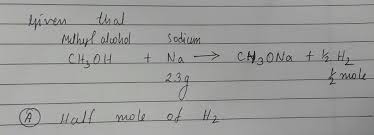 Given that
Methyl alcohol Sodium
CH3OH + Na → CH3ONa + ½ H2
23g ½ mole
(A) Half mole of H2